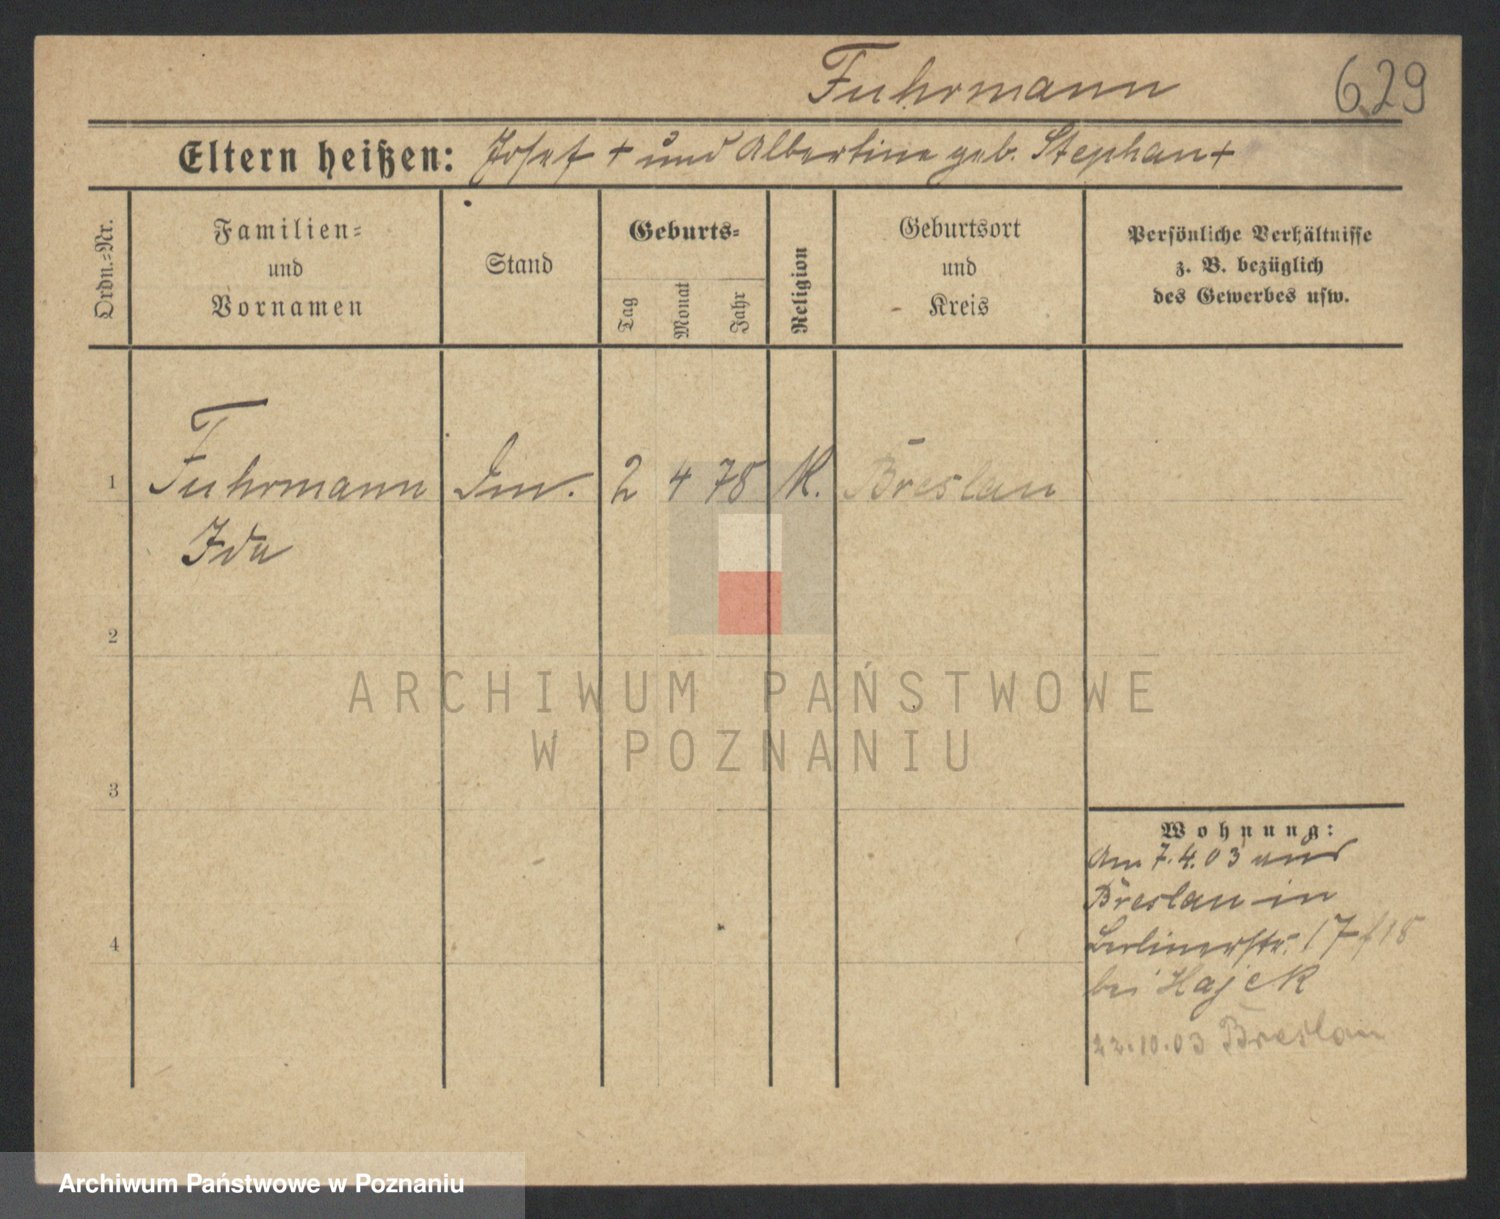 Fuhrmann
629
Eltern heißen: Josef + und Albertine geb. Stephan +
Ordn.-Nr.
Familien-
und
Vornamen
Stand
Geburts-
Tag
Monat
Jahr
Religion
Geburtsort
und
Kreis
Persönliche Verhältnisse
z. B. bezüglich
des Gewerbes usw.
1 Fuhrmann 2 4 78 K. Breslau
Ida
2
ARCHIWUM PAŃSTWOWE
W POZNANIU
3
Wohnung:
Am 7.4.03 aus
Breslau in
4
Berlinerstr. 17/18
bei Hajek
22.10.03 Breslau
Archiwum Państwowe w Poznaniu